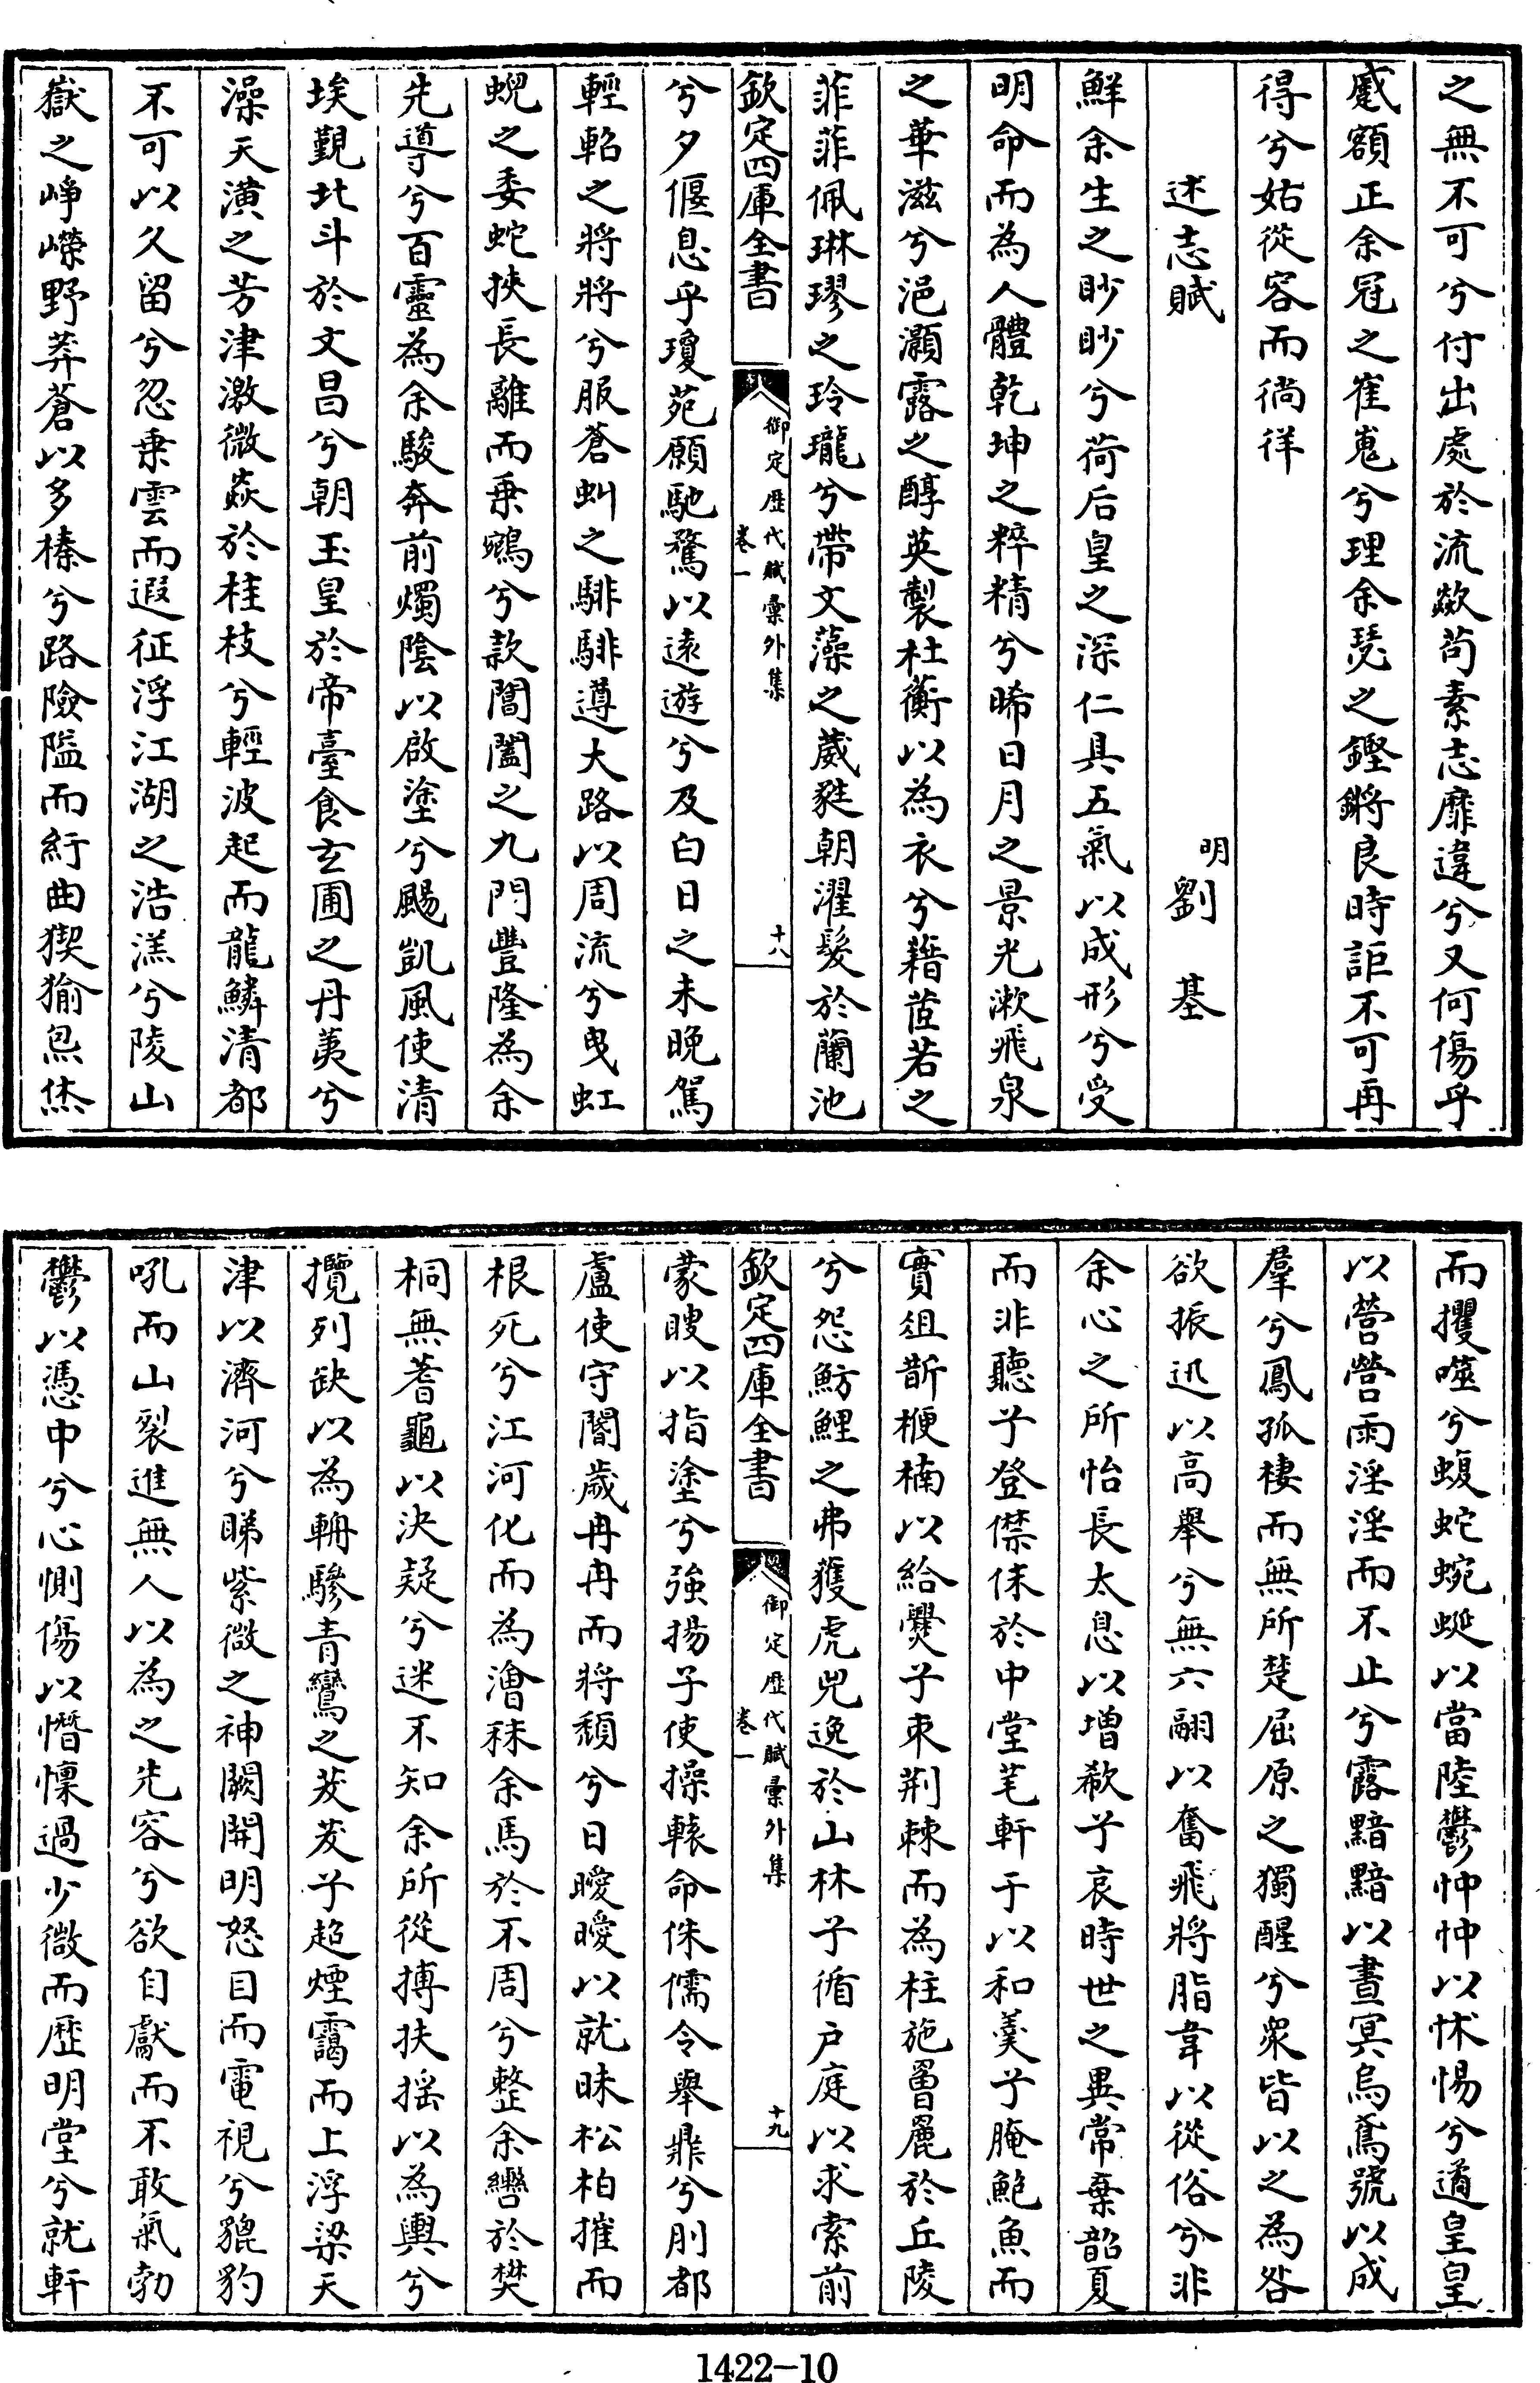 之無不可兮付出處於流歘苟素志靡違兮又何傷乎
蹙額正余冠之崔嵬兮理余瑟之鏗鏘良時詎不可再
得兮姑從容而徜徉
述志賦
明劉基
鮮余生之眇眇兮荷后皇之深仁具五氣以成形兮受
明命而為人體乾坤之粹精兮晞日月之景光漱飛泉
之華滋兮浥灝露之醇英製杜衡以為衣兮藉茝若之
菲菲佩琳璆之玲瓏兮帶文藻之葳蕤朝濯髮於蘭池
欽定四庫全書
御定歷代賦彙外集
卷一
十八
兮夕偃息乎瓊苑願馳騖以遠遊兮及白日之未晚駕
輕軺之將將兮服蒼虯之騑騑遵大路以周流兮曳虹
蜺之委蛇挾長離而乗鵷兮款閶闔之九門豐隆為余
先導兮百靈為余駿奔前燭陰以啟塗兮颺凱風使清
埃覲北斗於文昌兮朝玉皇於帝臺食玄圃之丹荑兮
澡天潢之芳津激微猋於桂枝兮輕波起而龍鱗清都
不可以久留兮忽乗雲而遐征浮江湖之浩溔兮陵山
嶽之崢嶸野莽蒼以多榛兮路險隘而紆曲猰㺄烋烋
而攫噬兮蝮蛇蜿蜒以當陸鬱忡忡以怵惕兮遹皇皇
以營營雨淫淫而不止兮露黯黯以晝冥烏鳶號以成
羣兮鳳孤棲而無所楚屈原之獨醒兮衆皆以之為咎
欲振迅以高舉兮無六翮以奮飛將脂韋以從俗兮非
余心之所怡長太息以增欷兮哀時世之異常棄韶夏
而非聽兮登僸佅於中堂芼軒于以和羮兮腌鮑魚而
實俎斮楩楠以給爨兮束荆棘而為柱施罾罹於丘陵
兮怨魴鯉之弗獲虎兕逸於山林兮循户庭以求索前
欽定四庫全書
御定歷代賦彙外集
卷一
十九
蒙瞍以指塗兮強揚子使操轅命侏儒令舉鼎兮刖都
盧使守閽歲冉冉而將頹兮日曖曖以就昧松柏摧而
根死兮江河化而為澮秣余馬於不周兮整余轡於樊
桐無蓍龜以決疑兮迷不知余所從摶扶揺以為輿兮
攬列缺以為輈驂青鸞之茇茇兮超煙靄而上浮梁天
津以濟河兮睇紫微之神闕開明怒目而電視兮貔豹
吼而山裂進無人以為之先容兮欲自獻而不敢氣勃
鬱以憑中兮心惻傷以憯懍過少微而歷明堂兮就軒
1422-10